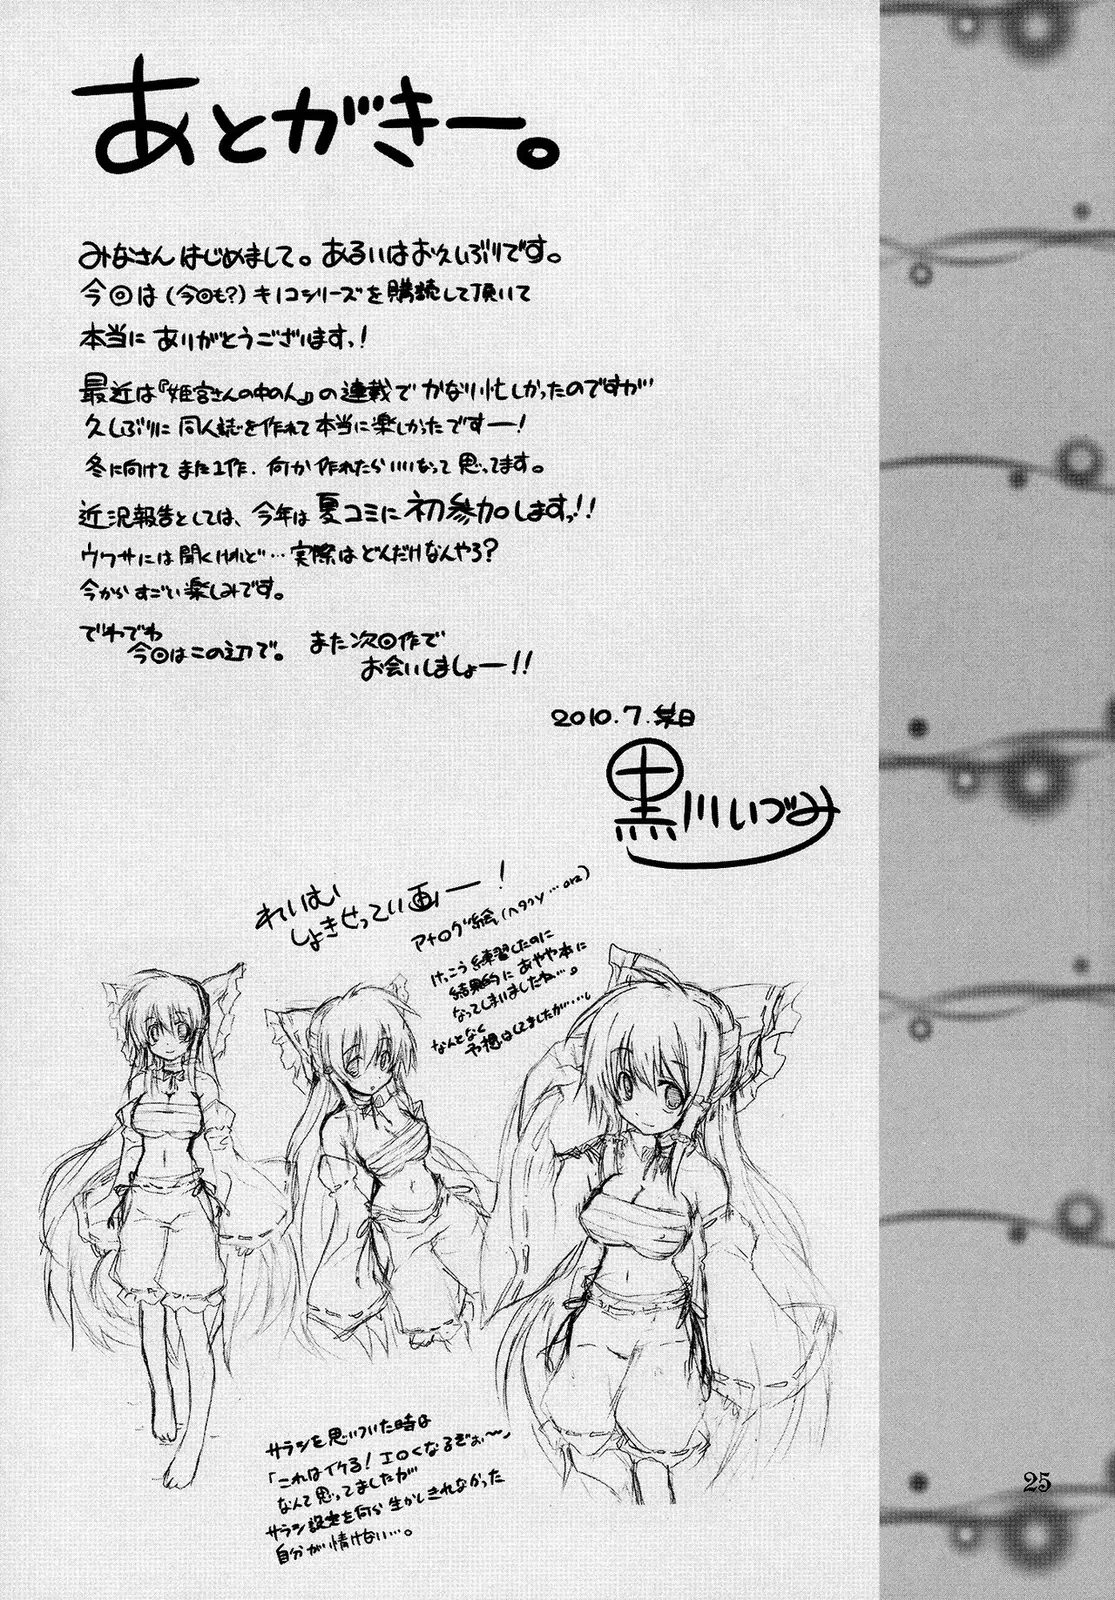 あとがきー。
みなさんはじめまして。あるいはお久しぶりです。
今回は(今回も?)キノコシリーズを購読して頂いて
本当にありがとうございますっ!
最近は『姫宮さんの中の人』の連載でかなり忙しかったのですが…
久しぶりに同人誌を作れて本当に楽しかったですー!
冬に向けてまた1作、何か作れたらいいなって思ってます。
近況報告としては、今年は夏コミに初参加しますっ!!
ウワサには聞くけれど…実際はどんだけなんやろ?
今からすごい楽しみです。
でわでわ
今回はこの辺で。
また次回作で
お会いしましょー!!
2010.7.某日
黒川いづみ
れいむ
しょきせってい画ー!
アナログ絵(ヘタクソ…orz)
けっこう練習したのに
結果的にあやや本に
なってしまいましたね…。
なんとなく
予想はしてましたが…。
サラシを思いついた時は
「これはイケる!エロくなるぞぉ〜」
なんて思ってましたが
サラシ設定を何ら生かしきれなかった
自分が情けない…。
25